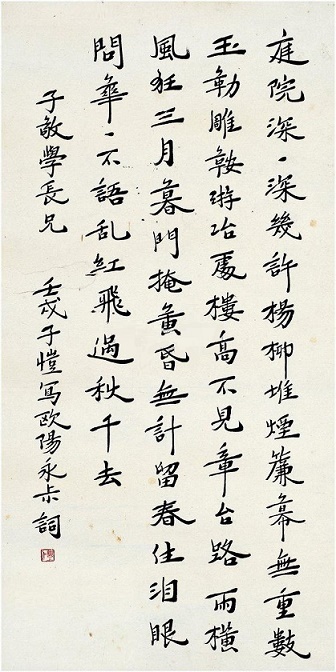 庭院深〻深幾許楊柳堆煙簾幕無重數
玉勒雕鞍遊冶處樓高不見章台路雨橫
風狂三月暮門掩黃昏無計留春住泪眼
問華〻不語乱紅飛過秋千去
子敏學長兄
壬戌子愷寫歐陽永叔詞